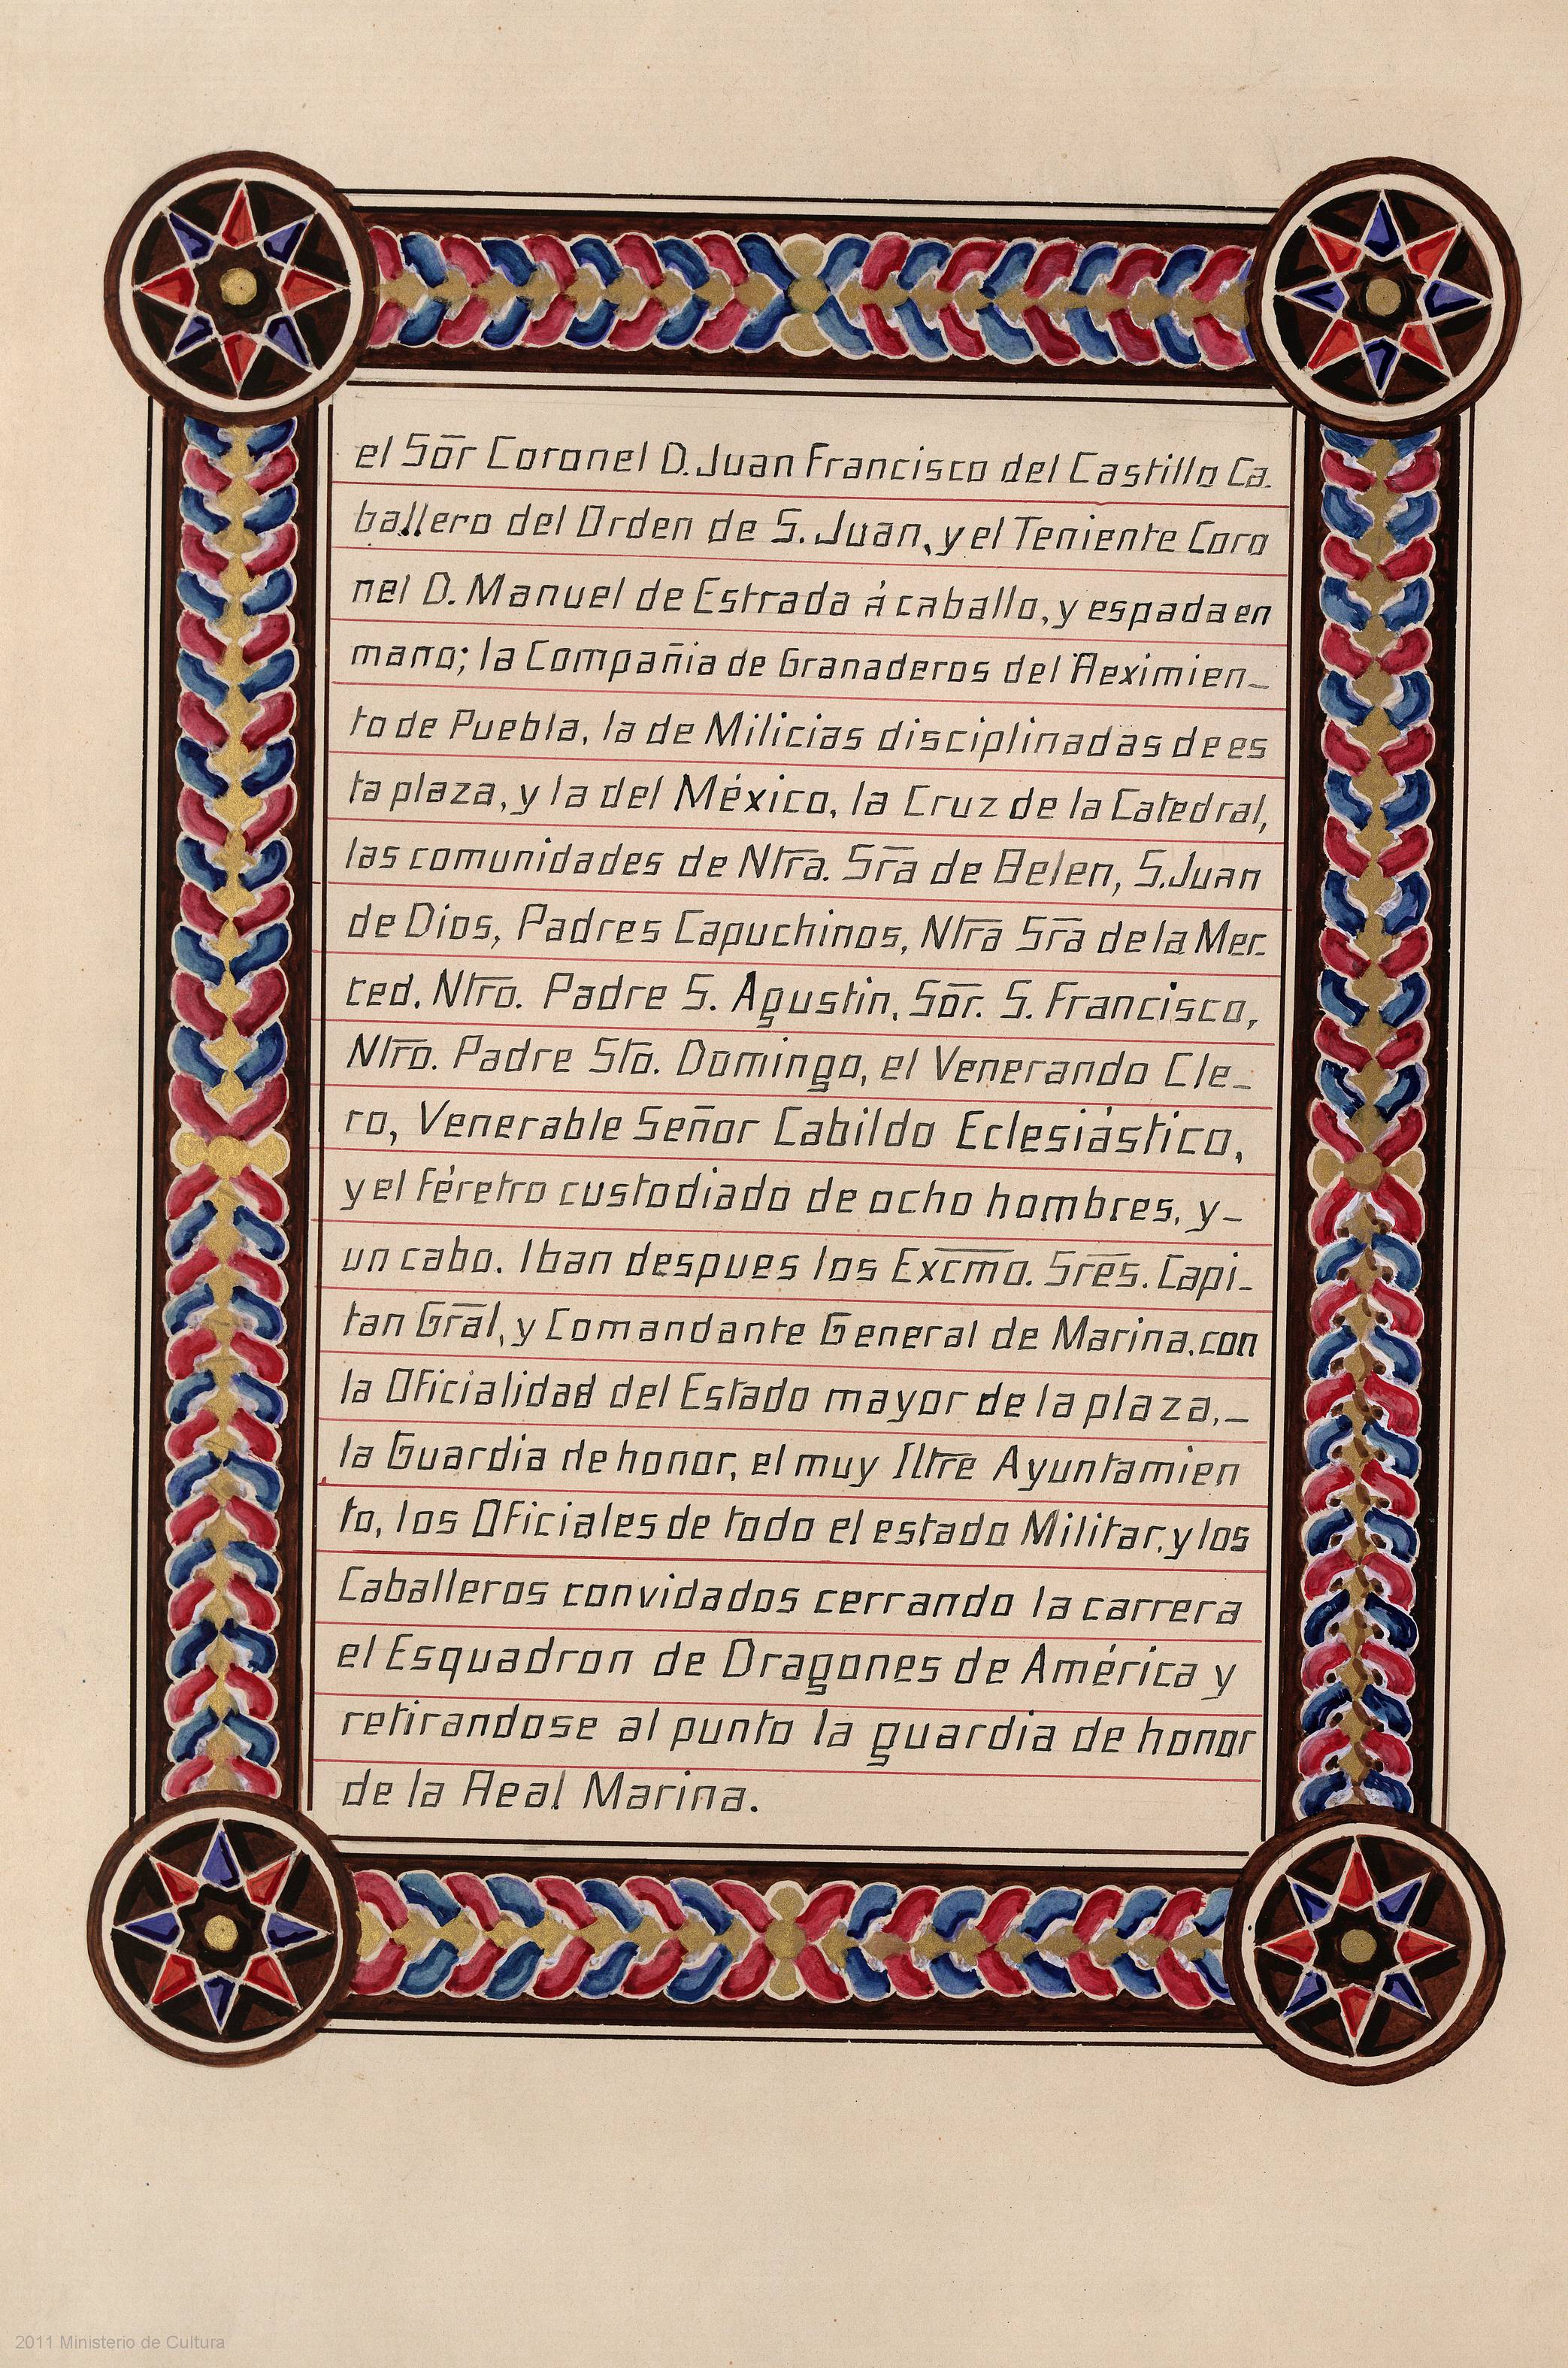 el Sōr Coronel D. Juan Francisco del Castillo Ca.
ballero del Orden de S. Juan, y el Teniente Coro
nel D. Manuel de Estrada á caballo, y espada en
mano; la Compañia de Granaderos del Reximien_
to de Puebla, la de Milicias disciplinadas de es
ta plaza, y la del México, la Cruz de la Catedral,
las comunidades de Ntr̄a. Sr̄a de Belen, S. Juan
de Dios, Padres Capuchinos, Ntr̄a Sr̄a de la Mer.
ced, Ntr̄o. Padre S. Agustin, Sōr. S. Francisco,
Ntr̄o. Padre Stō. Domingo, el Venerando Cle_
ro, Venerable Señor Cabildo Eclesiástico,
y el féretro custodiado de ocho hombres, y_
un cabo. Iban despues los Exc̄mo. Srēs. Capi_
tan Grāl, y Comandante General de Marina, con
la Oficialidad del Estado mayor de la plaza,_
la Guardia de honor, el muy Iltr̄e Ayuntamien
to, los Oficiales de todo el estado Militar, y los
Caballeros convidados cerrando la carrera
el Esquadron de Dragones de América y
retirandose al punto la guardia de honor
de la Real Marina.
2011 Ministerio de Cultura